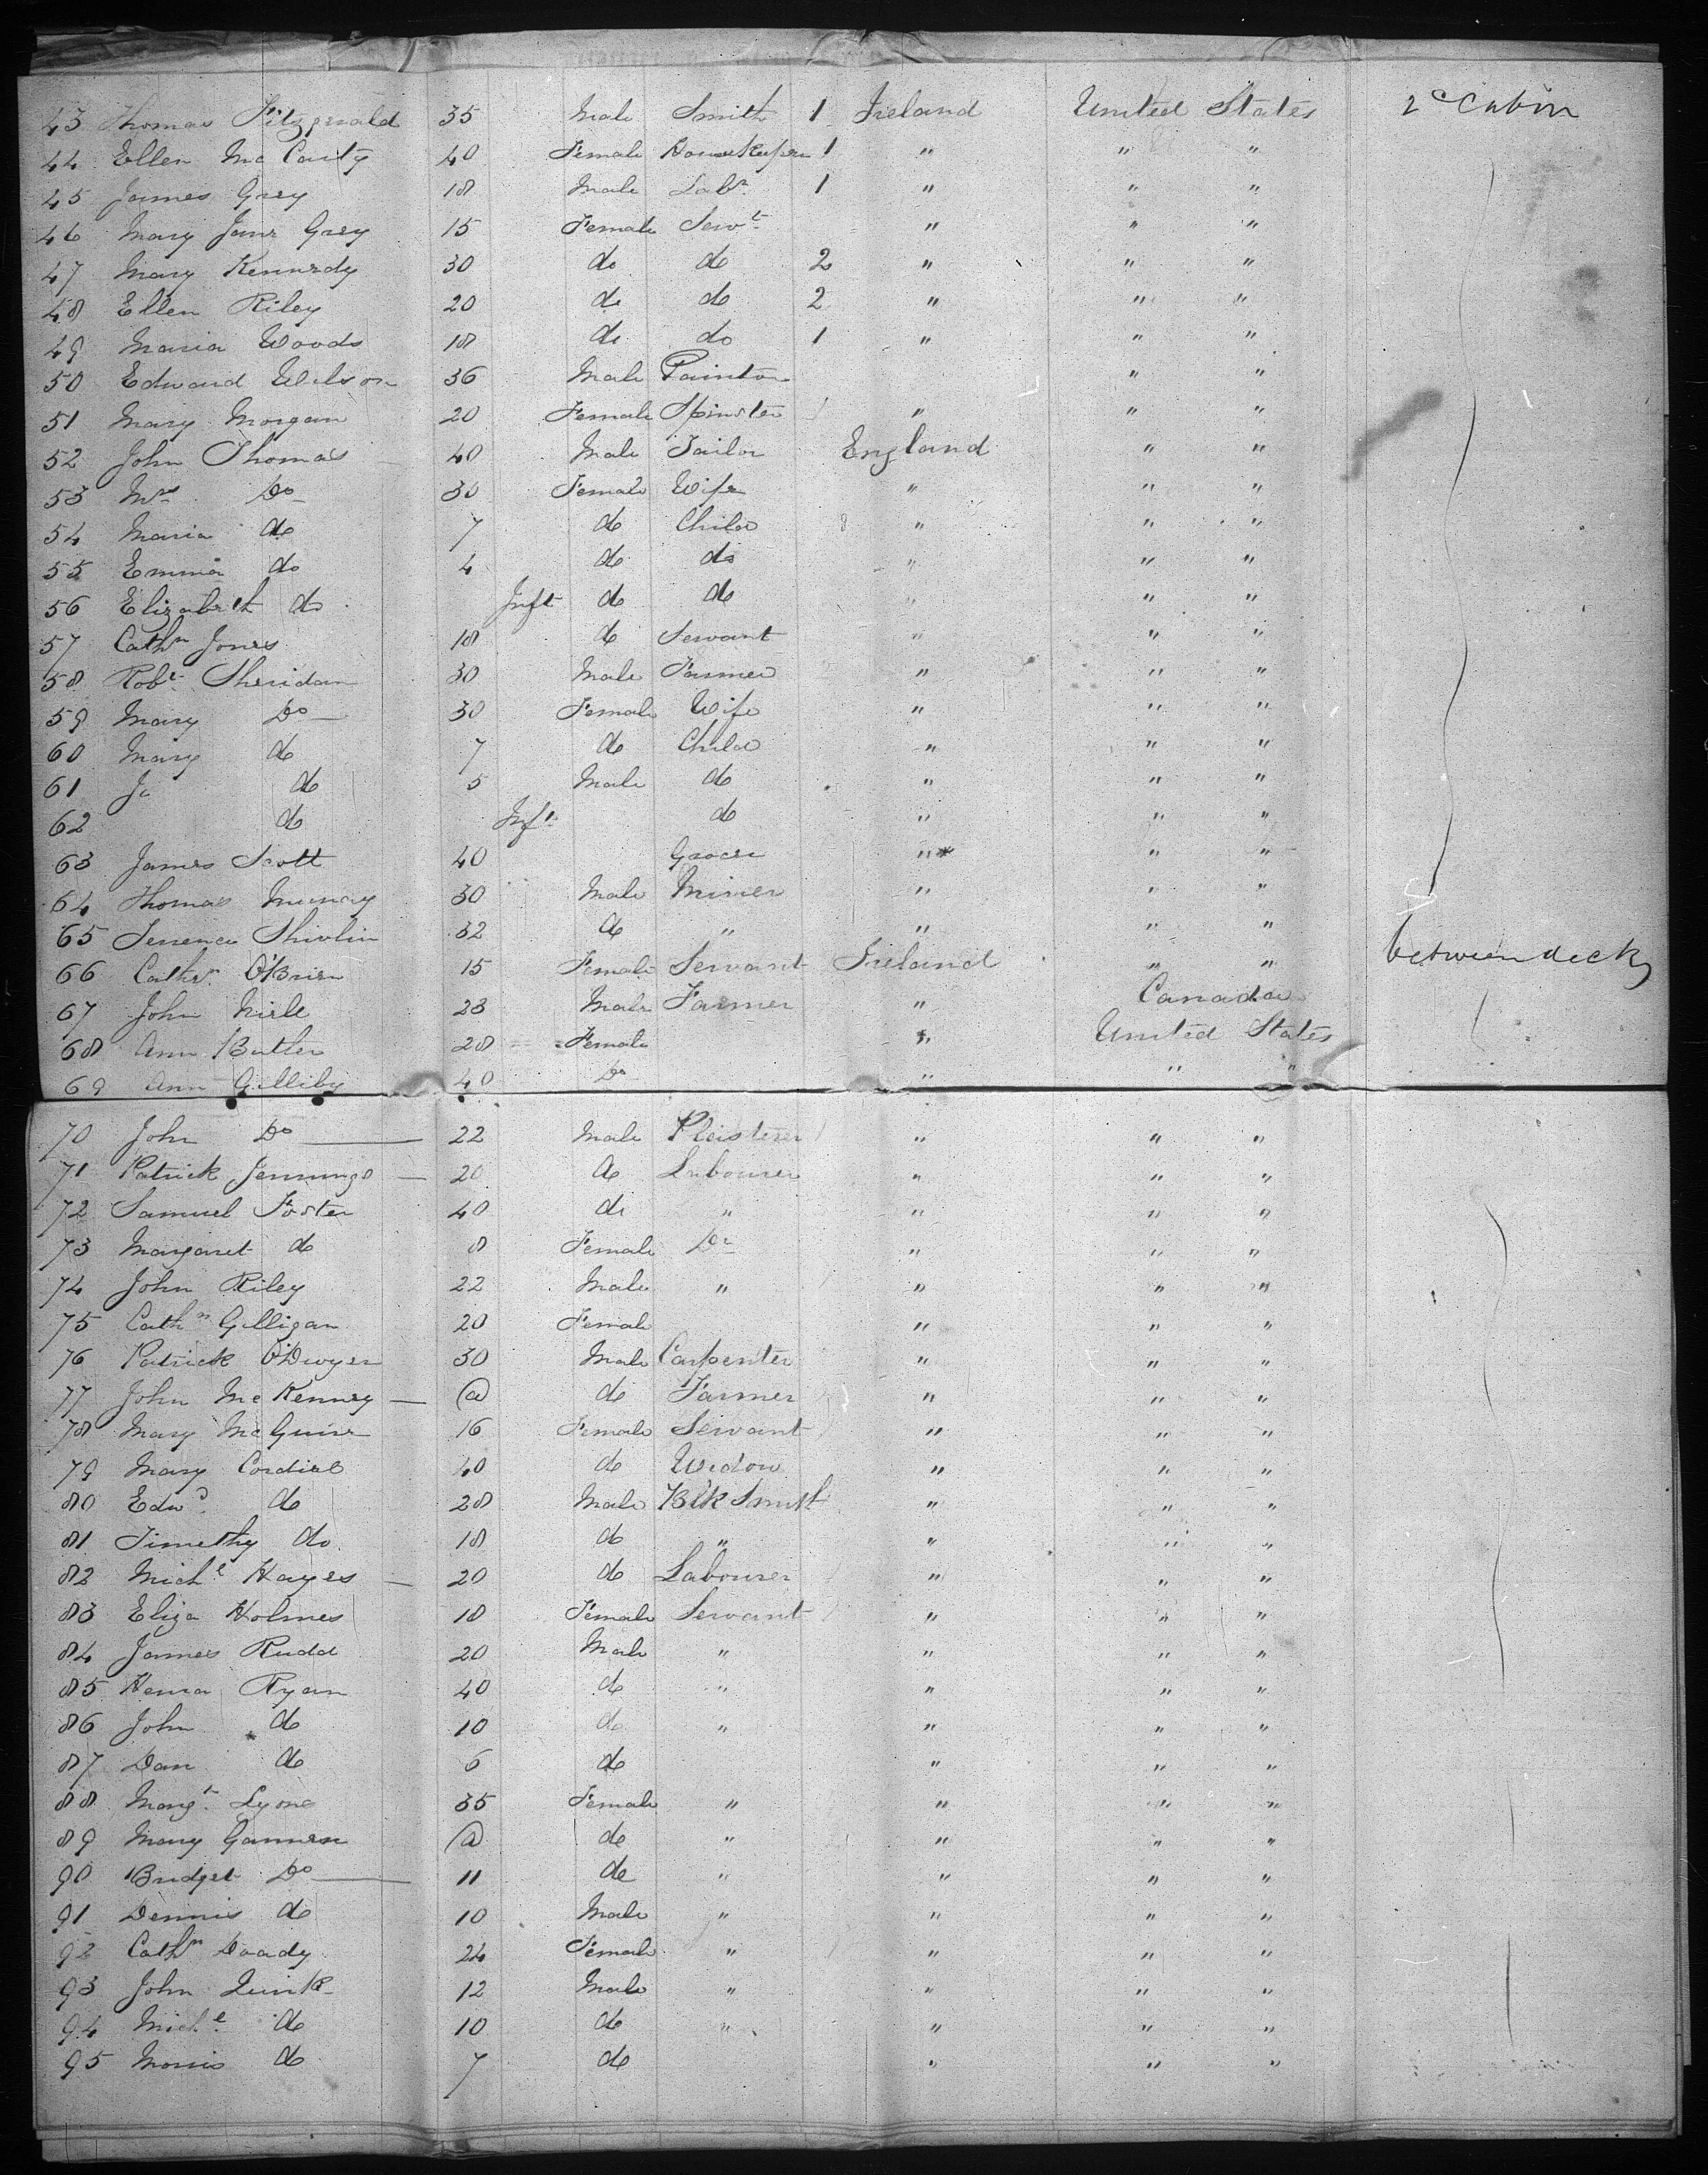 43 Thomas Fitzgerald 35 Male Smith 1 Ireland United States 2c Cabin
44 Ellen Mc Carty 40 Female Housekeeper 1 " " "
45 James Grey 18 Male Labr 1 " " "
46 Mary Jane Grey 15 Female Servt " " "
47 Mary Kennedy 30 do do 2 " " "
48 Ellen Riley 20 do do 2 " " "
49 Maria Woods 18 do do 1 " " "
50 Edward Wilson 36 Male Painter " "
51 Mary Morgan 20 Female Spinster " " "
52 John Thomas 40 Male Tailor England " "
53 Mrs Do 30 Female Wife " " "
54 Maria do 7 do Child " " "
55 Emma do 4 do do " " "
56 Elizabeth do Inft do do " " "
57 Cathn Jones 18 do Servant " " "
58 Robt Sheridan 30 Male Farmer " " "
59 Mary Do 30 Female Wife " " "
60 Mary do 7 do Child " " "
61 do 5 Male do " " "
62 do Inft do " " "
63 James Scott 40 Grocer " " "
64 Thomas Murray 30 Male Miner " " "
65 Terrence 32 do " " " "
66 Cathn O'Brien 15 Female Servant Ireland " " between decks
67 John 23 Male Farmer " Canada
68 Ann Butler 28 Female " United States
69 Ann Gilliby 40 Do " " "
70 John Do 22 Male Plaisterer " " "
71 Patrick Jennings 20 do Labourer " " "
72 Samuel Foster 40 do " " " "
73 Margaret do 8 Female Do " " "
74 John Riley 22 Male " " " "
75 Cathn Gilligan 20 Female " " "
76 Patrick O'Dwyer 30 Male Carpenter " " "
77 John Mc Kenney (a) do Farmer " " "
78 Mary McGuire 16 Female Servant " " "
79 Mary Cordial 40 do Widow " " "
80 Edwd do 28 Male Blk Smith " " "
81 Timothy do 18 do " " " "
82 Michl Hayes 20 do Labourer " " "
83 Eliza Holmes 18 Female Servant " " "
84 James Rudd 20 Male " " " "
85 Ryan 40 do " " " "
86 John do 10 do " " " "
87 Dan do 6 do " " "
88 Margt Lyons 35 Female " " " "
89 Mary (a) do " " " "
90 Bridget Do 11 do " " " "
91 Dennis do 10 Male " " " "
92 Cathn Doady 24 Female " " " "
93 John 12 Male " " " "
94 Michl do 10 do " " " "
95 Morris do 7 do " " "